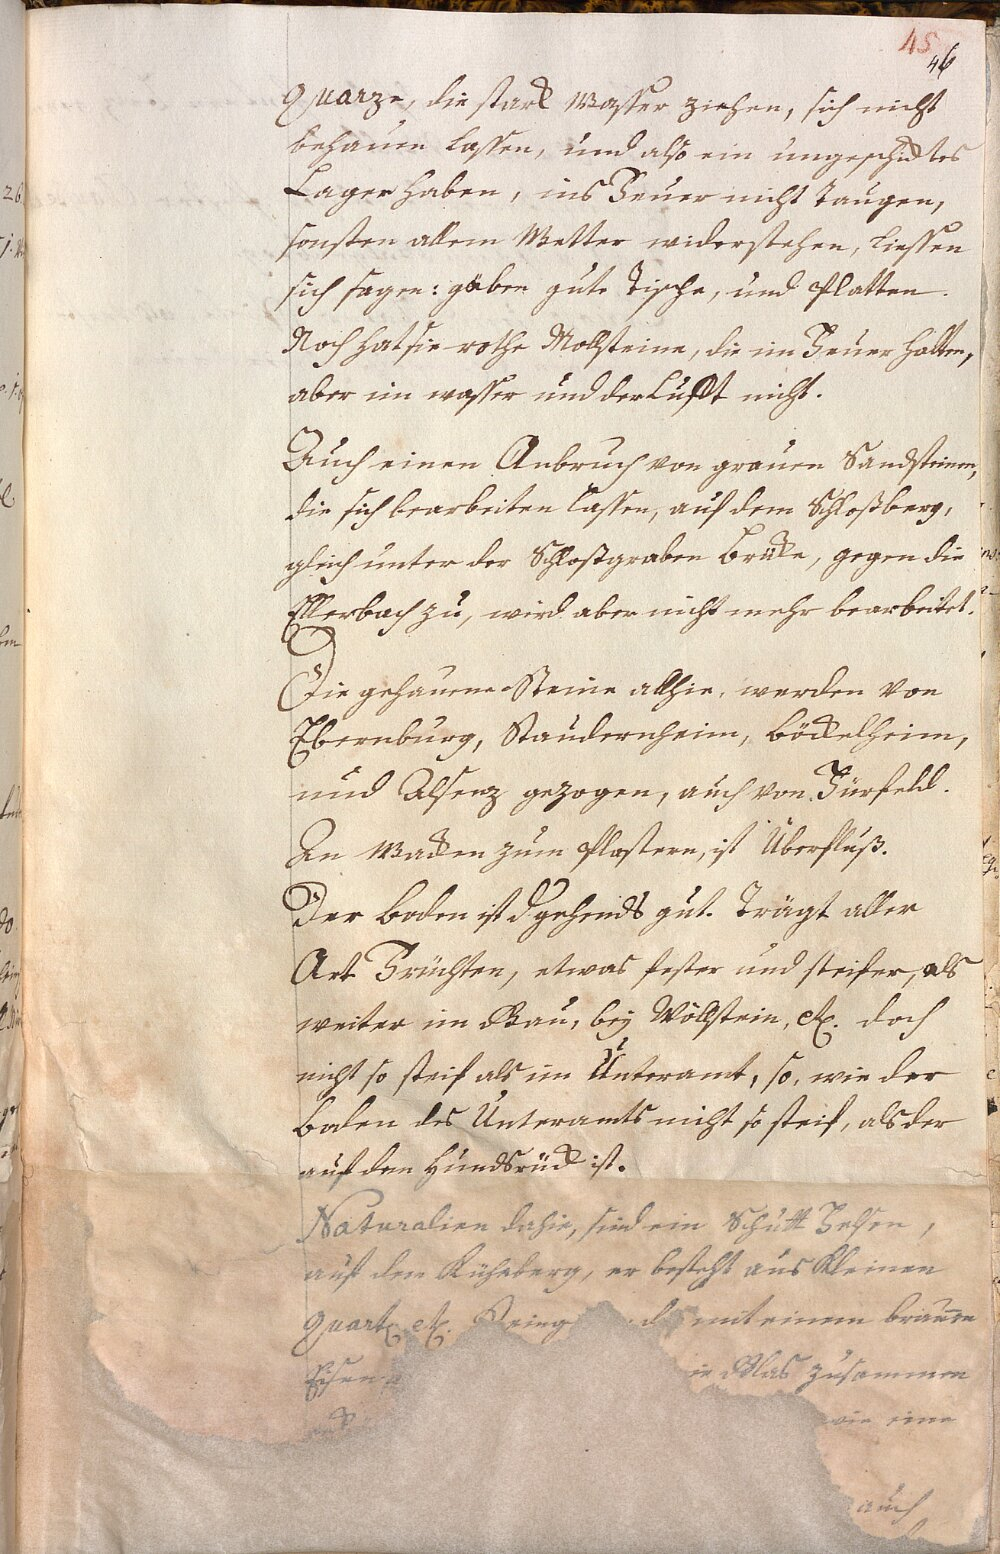 45
46
Quarze, die starck Wasser ziehen, sich nicht
behauen lassen, und also ein ungeschicktes
Lager haben, ins Feuer nicht Taugen,
sonsten allem Wetter widerstehen, liessen
sich sagen: gäben gute Tische, und Platten.
Noch hat sie rothe Mollsteine, die im Feuer halten,
aber im wasser und der Lufft nicht.
Auch einen Anbruch von grauen Sandsteinen,
die sich bearbeiten lassen, auf dem Schloßberg,
gleich unter der Schlossgraben Brücke, gegen die
Ellerbach zu, wird aber nicht mehr bearbeitet.
Die gehauene Steine allhie, werden von
Ebernburg, Staudernheim, Böckelheim,
und Alsenz gezogen, auch von Fürfeld.
An Wacken zum Plastern, ist Überfluß.
Der boden ist dgehends gut. Trägt aller
Art Früchten, etwas fester und steifer, als
weiter im Gau, bey Wöllstein, etc. doch
nicht so steif als im Unteramt, so, wie der
boden des Unteramts nicht so steif, als der
auf dem Hundsrück ist.
Naturalien dahie, sind ein Schutt Felsen,
auf dem Kühberg, er besteht aus Kleinen
Quartz etc. mit einem braunen
Eisen Glas zusammen
wie eine
auch